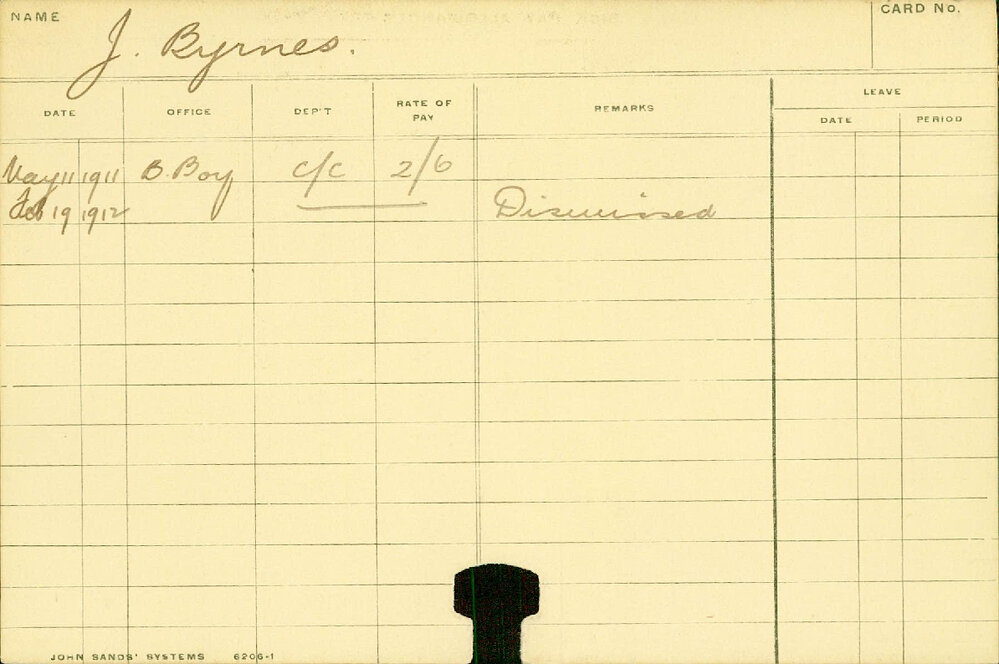 NAME J. Byrnes. CARD No.
LEAVE
DATE OFFICE DEP'T RATE OF PAY REMARKS DATE PERIOD
May 11 1911 B. Boy C/C 2/6
Feb 19 1912 Dismissed
JOHN SANDS' SYSTEMS 6206-1